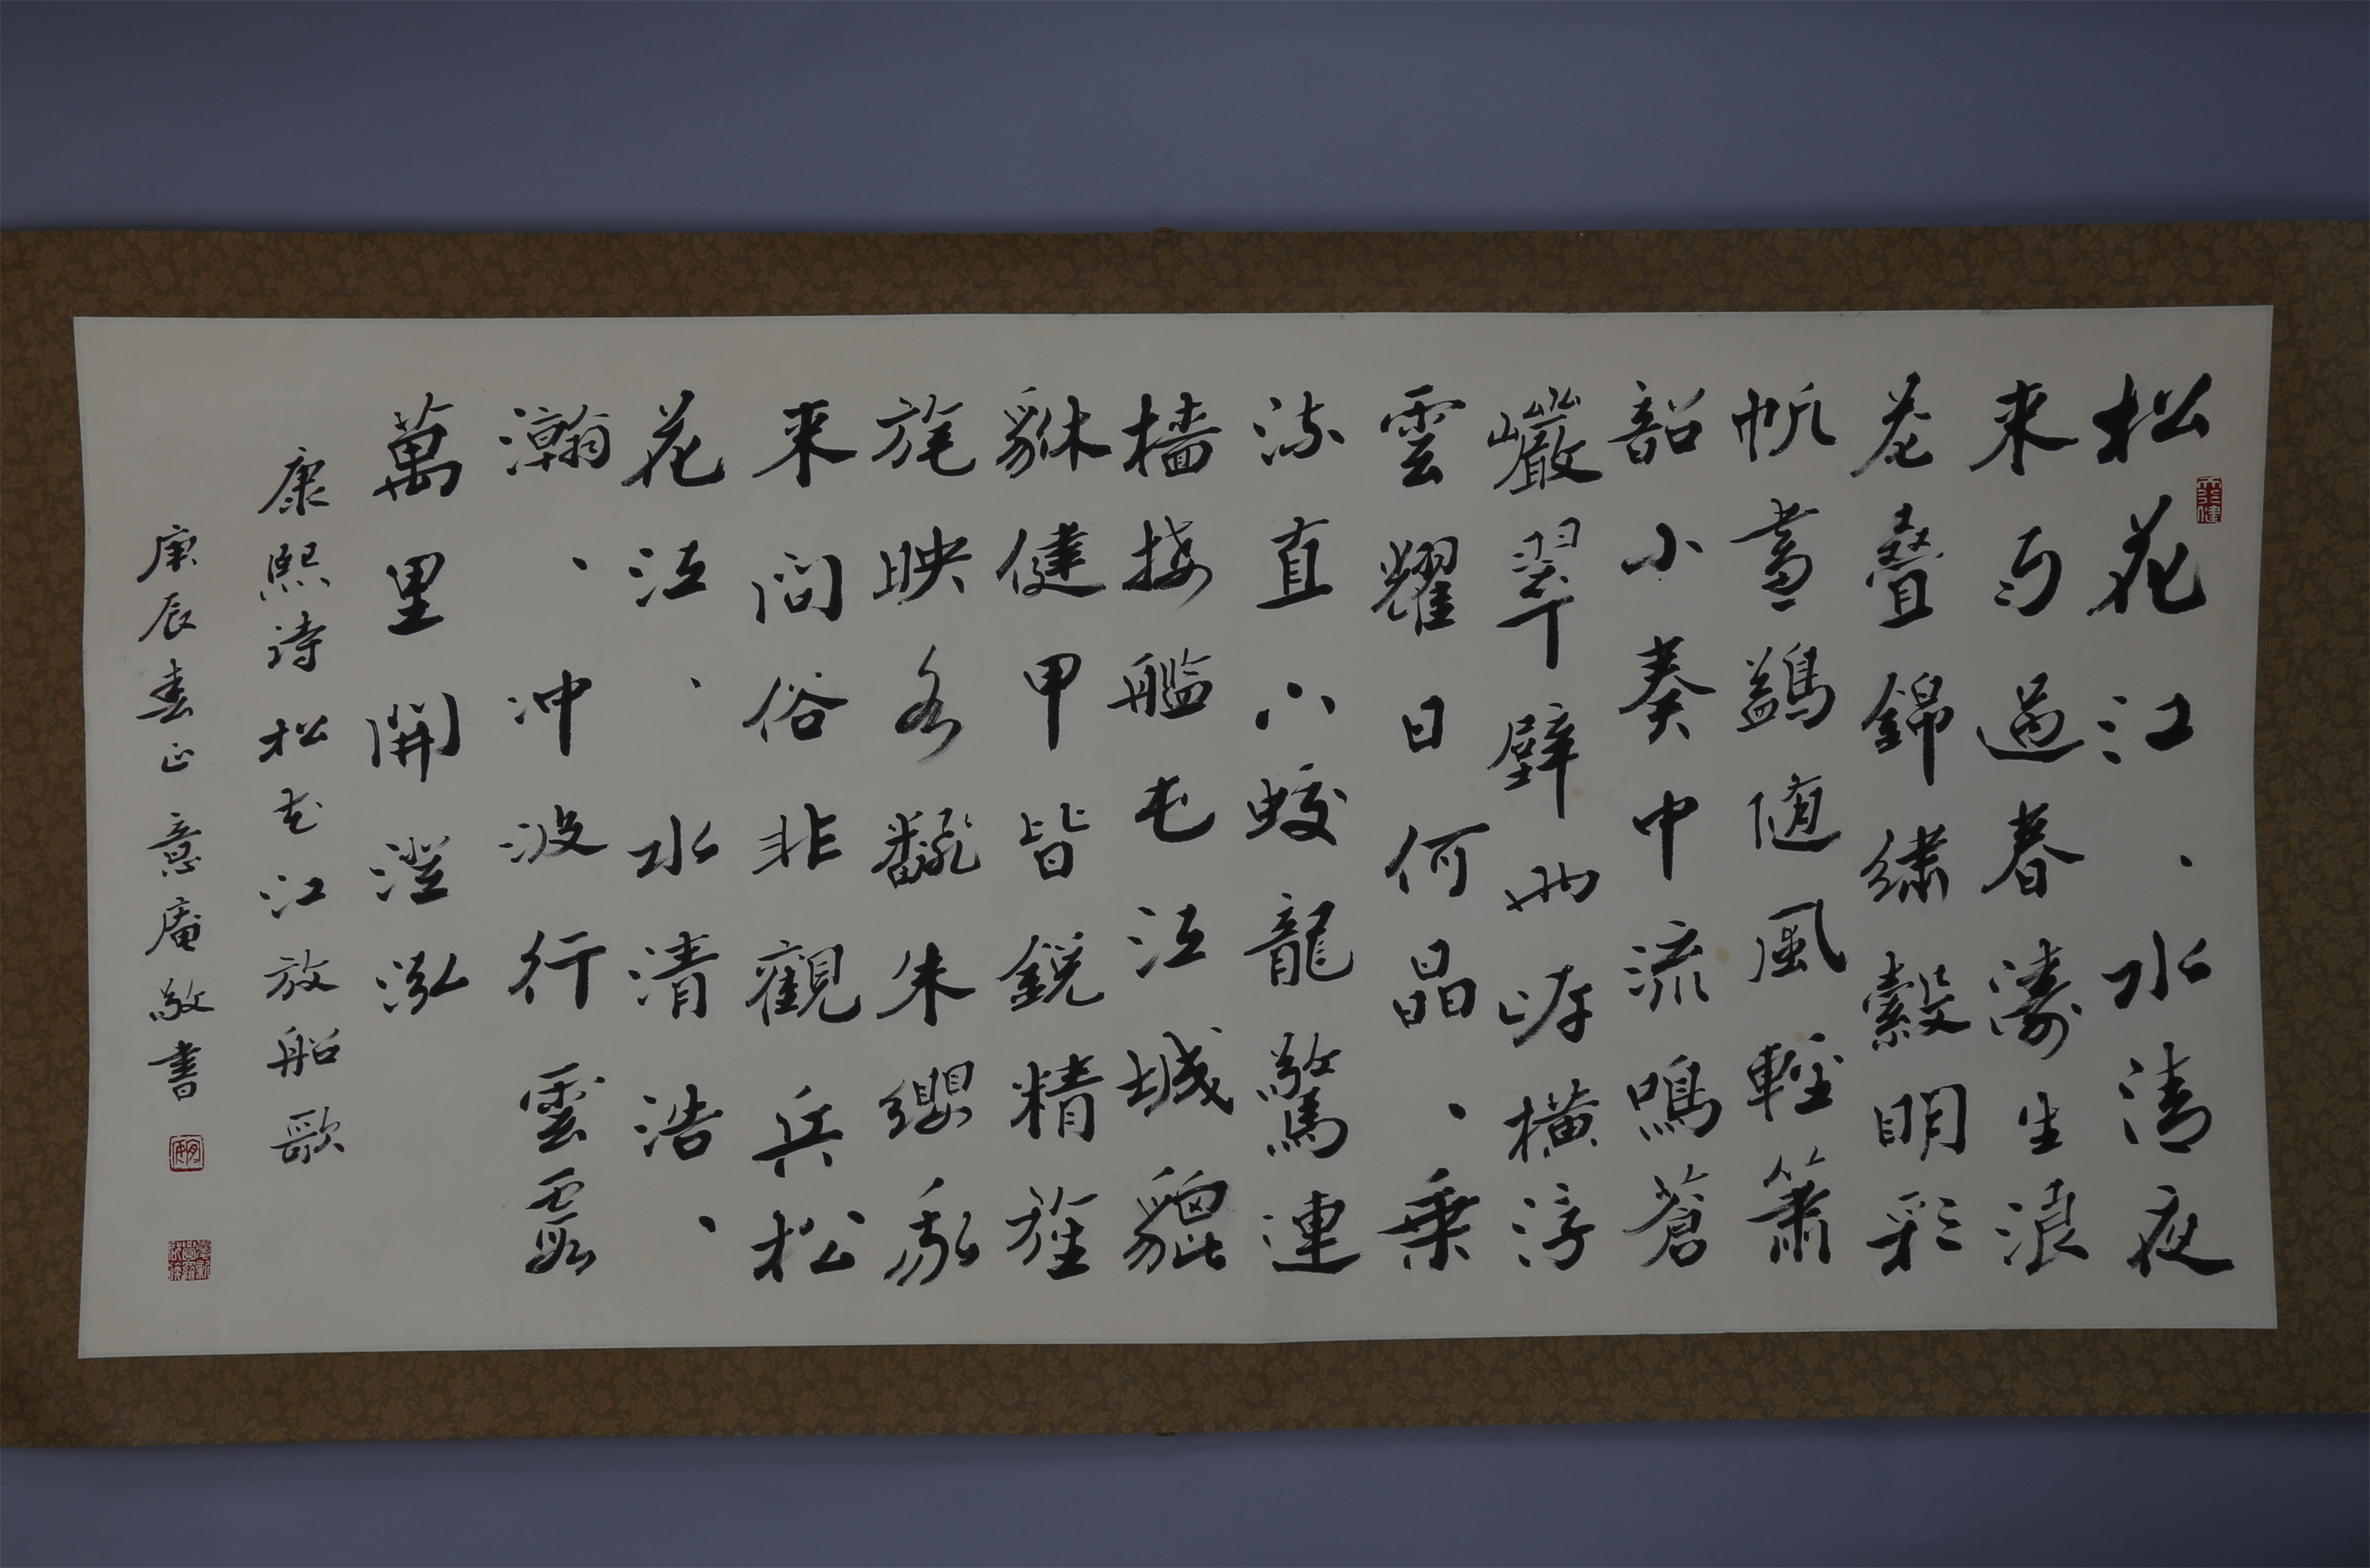 松花江、水清夜
来雨過春濤生浪
花疊錦繡縠明彩
帆畫鷁随風輕簫
韶小奏中流鳴蒼
巖翠壁兩岸橫浮
雲耀日何晶、乘
流直下蛟龍驚連
檣接艦屯江城貔
貅健甲皆銳精旌
旄映水翻朱纓我
来問俗非觀兵松
花江、水清浩、
瀚、冲波行雲霞
萬里開澄泓
康熙詩松花江放船歌
庚辰春正意庵敬書